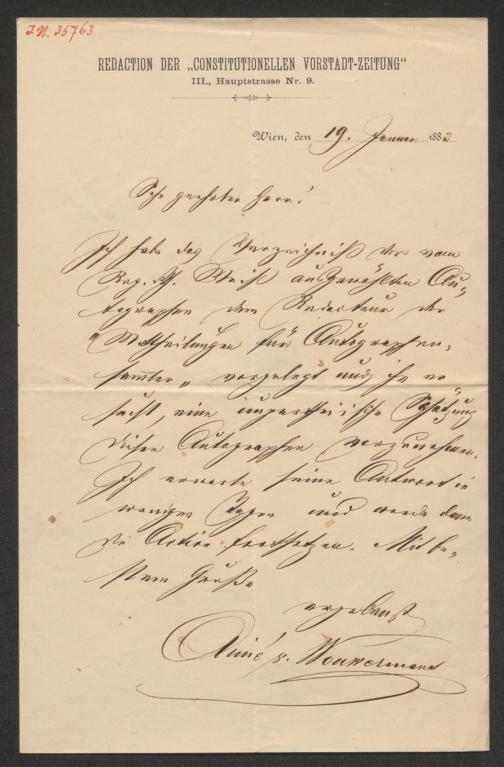 I.N. 35763
REDACTION DER „CONSTITUTIONELLEN VORSTADT-ZEITUNG“
III., Hauptstrasse Nr. 9.
Wien, den 19. Januar 1883
Sehr geehrter Herr!
Ich habe das Verzeichniß der vom
Reg. R. Weiß ausgewählten Au-
tographen dem Redacteur der
„Mittheilungen für Autographen-
sammler“ vorgelegt und ihn er
sucht, eine unpartheiische Schätzung
dieser Autographen vorzunehmen.
Ich erwarte seine Antwort in
wenigen Tagen und werde dann
die Action fortsetzen. Mit be-
stem Gruße
ergebenst
Aimé v. Wouwermans